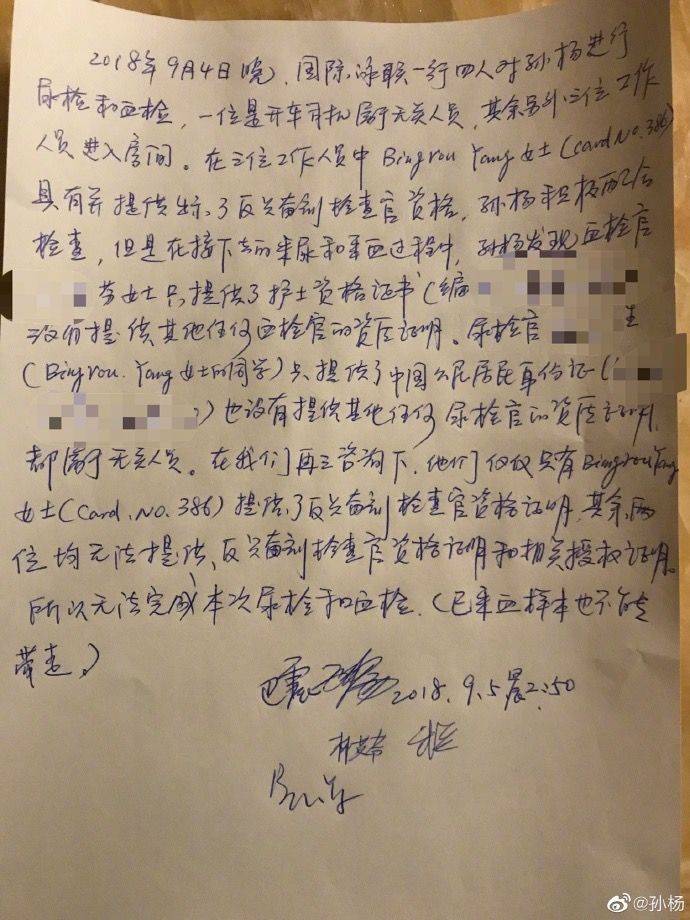 2018年9月4日晚，国际泳联一行四人对孙杨进行
尿检和血检，一位是开车司机属于无关人员，其余另外三位工作
人员进入房间。在三位工作人员中Bingrou Yang女士(card No.386)
具有并提供出示了反兴奋剂检查官资格，孙杨积极配合
检查，但是在接下去的采尿和采血过程中，孙杨发现血检官
劳女士只提供了护士资格证书(编
没有提供其他任何血检官的资质证明。尿检官 生
(Bingrou.Yang女士的同学)只提供了中国公民居民身份证(
)也没有提供其他任何尿检官的资质证明，
都属于无关人员。在我们再三咨询下，他们仅仅只有Bingrou Yang
女士(Card.No.386)提供了反兴奋剂检查官资格证明，其余两
位均无法提供反兴奋剂检查官资格证明和相关授权证明。
所以无法完成本次尿检和血检.(已采血样本也不能
带走.)
巴震 2018.9.5晨2:50
@孙杨